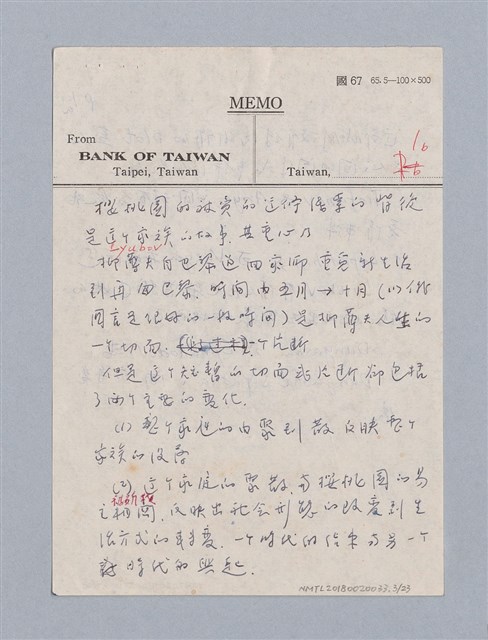 國 67 65.5—100×500
MEMO
From
BANK OF TAIWAN
Taipei, Taiwan
Taiwan,
16
櫻桃園的被賣的這件俗事的背後
是這个家族的故事. 其重心乃
Lyubov
柳薄夫自巴黎返回家鄉 重尋新生活
到再回巴黎. 時間由五月→十月(11)(俄
國言是很好的一段時間)是柳薄夫人生的
一个切面. 一个片斷
但是這个短暫的切面或片斷卻包括
了兩个主要的變化.
(1) 整个家庭的由聚到散反映整个
家族的沒落
(2) 這个家庭的聚散, 與櫻桃園的易
主相關, 反映出社會形態的改變到生
活方式的轉變. 一个時代的結束與另一个
新時代的興起.
NMTL20180020033.3/23